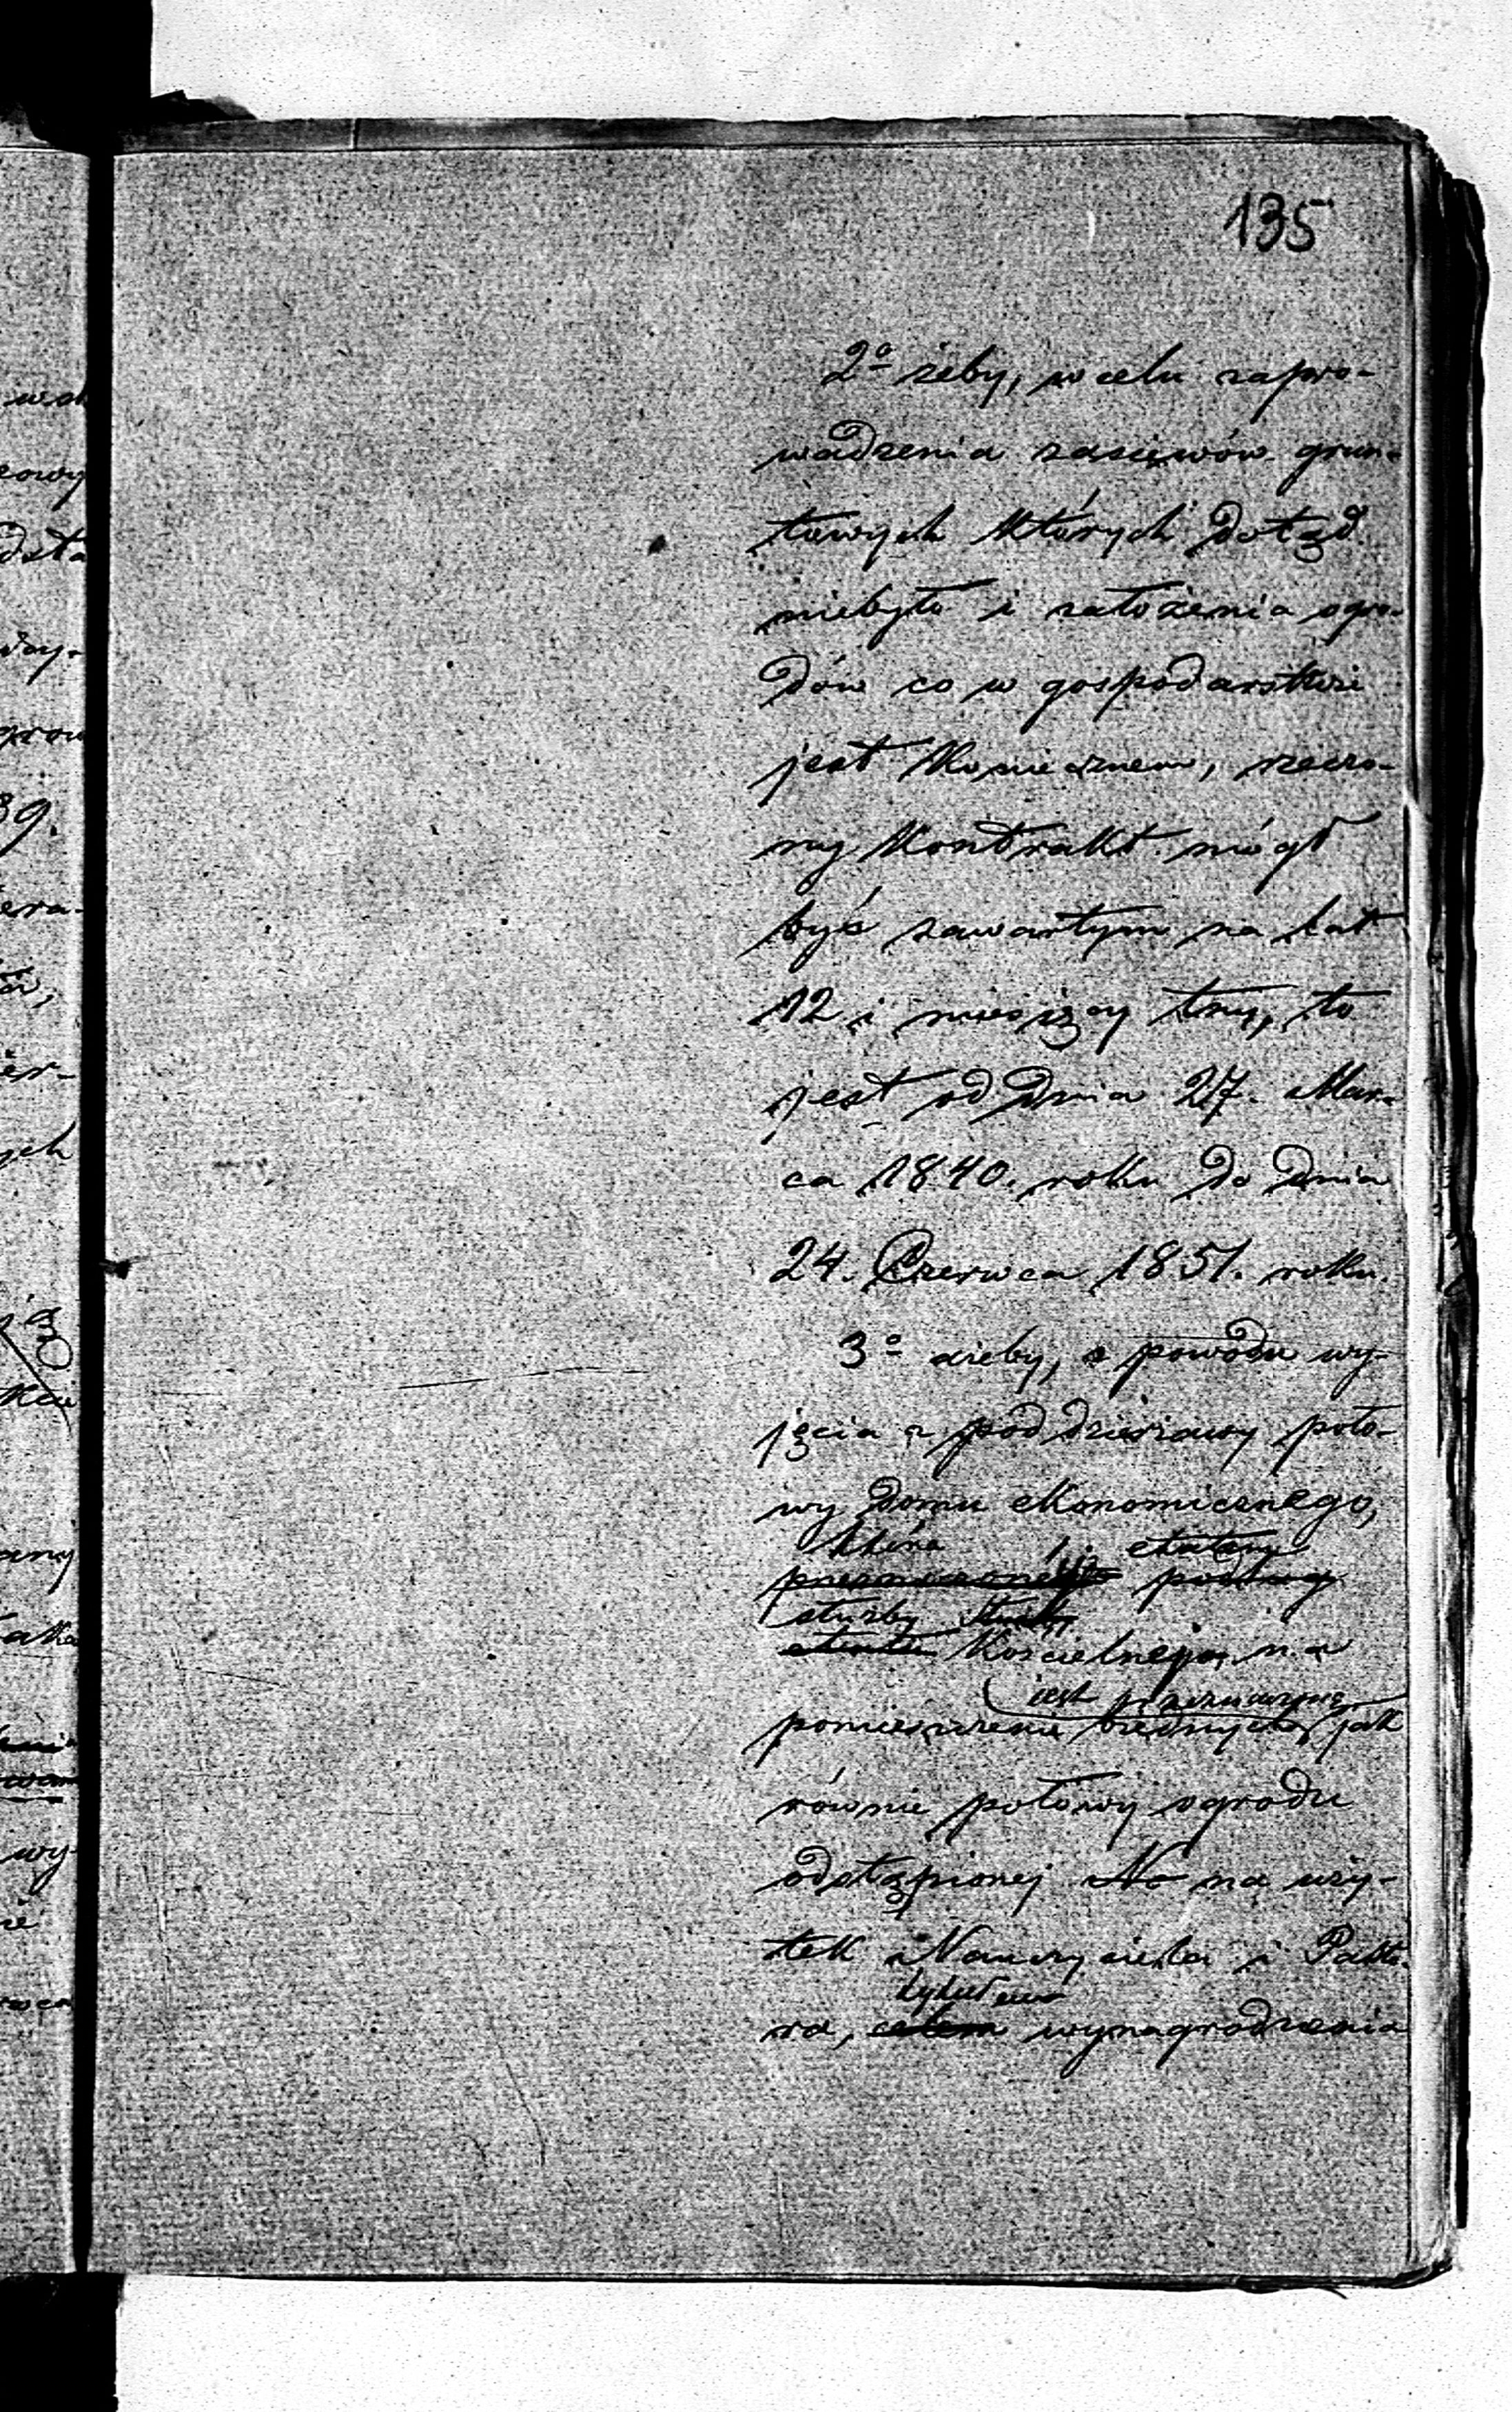 135
2o żeby, w celu zapro-
wadzenia zasiewów grun-
towych których dotąd
niebyło i założenia ogro-
dów co w gospodarstwie
jest koniecznem, rzeczo-
ny kontrakt mógł
być zawartym na lat
12 i miesięcy trzy, to
jest od dnia 27. Mar-
ca 1840. roku do dnia
24. Czerwca 1851. roku.
3o żeby, z powodu wy-
jęcia z pod dzierżawy poło-
wy domu ekonomicznego,
która etatem
podług
służby
etatu Kościelnego, na
jest przeznaczoną
pomieszczenie biednych jak
równie połowy ogrodu
odstąpionej na uży-
tek Nauczyciela i Pasto-
tytułem
ra, celem wynagrodzenia